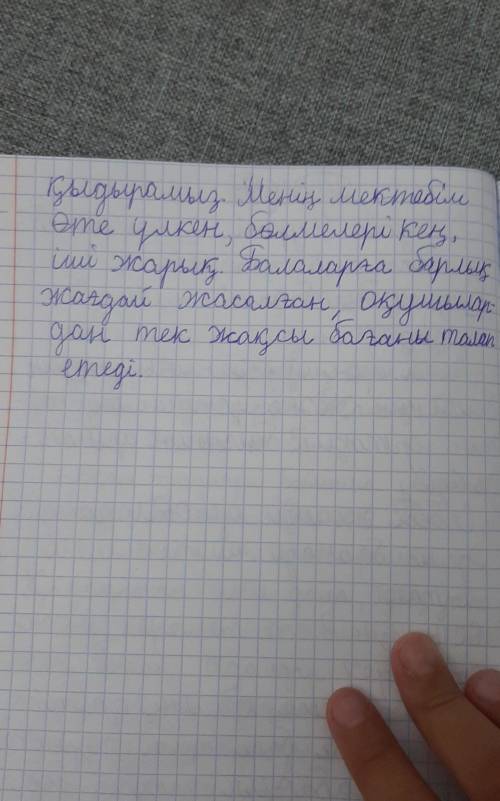 қыдырамыз. Менің мектебім
өте үлкен, бөлмелері кең,
іші жарық. Балаларға барлық
жағдай жасалған, оқушылар-
дан тек жақсы бағаны талап
етеді.